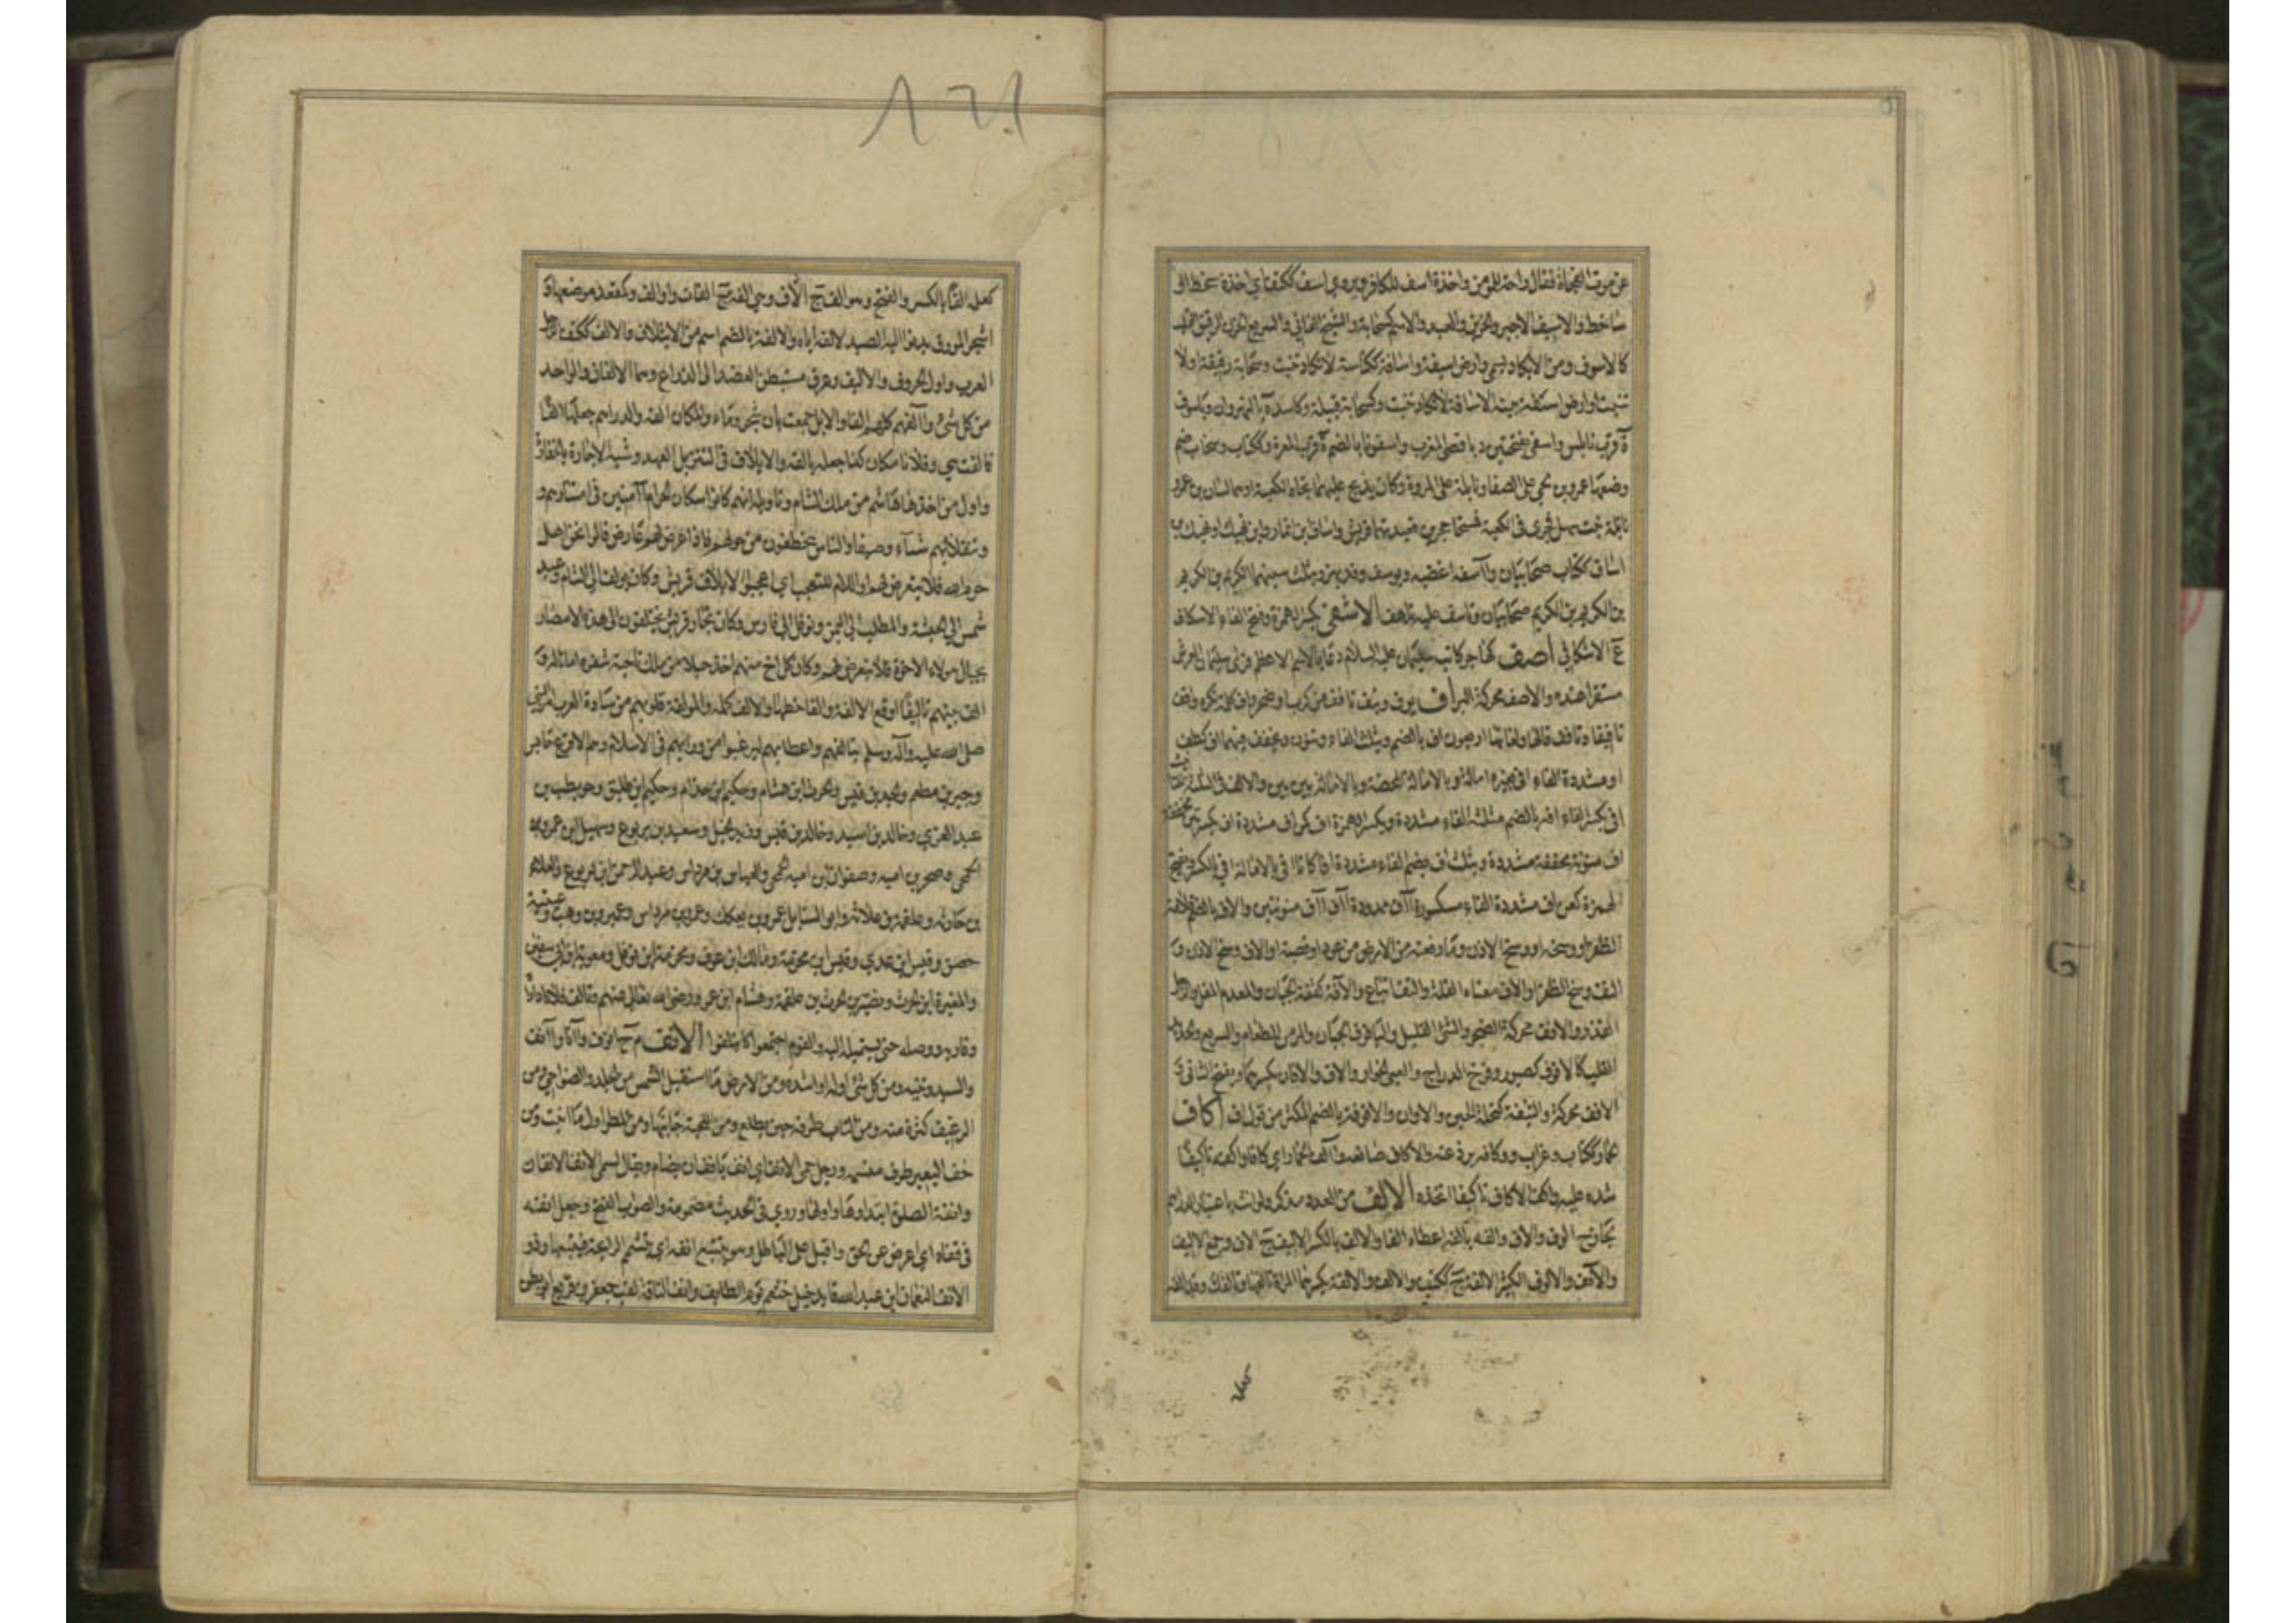 عن موت الفجاة فقال راحة للمومن واخذة اسف للكافر ويروى اسف ككتف اي اخذة سخط او
ساخط والاسيف الاجير والحزين والعبد والاسم كسحابة والشيخ الفاني والسريع الحزن الرقيق القلب
كالاسوف ومن لا يكاد يسمن وارض اسيفة واسافة ككناسة لا تكاد تنبت وسحابة رقيقة اولا
تنبت او ارض اسفة بينة الاسافة لا تكاد تنبت وكسحابة قبيلة وكاسدة بالنهروان وياسوف
ة قرب نابلس واسفى بفتحتين د باقصى المغرب واسفونا بالضم ة قرب المعرة وككتاب وسحاب صنم
وضعها عمرو بن لحي على الصفا ونايلة على المروة وكان يذبح عليهما تجاه الكعبة او هما اساف بن عمرو
نايلة بنت سهل فجرا في الكعبة فمسخا حجرين فعبدتهما قريش واساف بن انمار وابن نهيك او نهيك بن
اساف ككتاب صحابيان وآسفه اغضبه ويوسف وقد يهمز ويثلث سينهما الكريم بن الكريم
بن الكريم بن الكريم صحابيان وتاسف عليه تلهف الاشفى بكسر الهمزة وفتح الفاء الاسكاف
ج الاشافي اصف كهاجر كاتب سليمان عليه السلام دعا بالاسم الاعظم فراى سليمان العرش
مستقرا عنده والاصف محركة الكبر اف يوف ويئف تافف من كرب او ضجر واف كلمة تكره وافف
تافيفا وتافف قالها ولغاتها اربعون اف بالضم ويثلث الفاء وتنون وتخفف فيهما اف كطف
او مشددة الفاء افى بغير امالة وبالامالة المحضة وبالامالة بين بين والالف في الثلثة للتانيث
افي بكسر الفاء افه بالضم مثلثة الفاء مشددة وبكسر الهمزة اف كراف مشددة اف بكسرتين مخففة
اف منونة مخففة مشددة ويثلث اف بضم الفاء مشددة افا كانا افى بالامالة افي بالكسر وبفتح
الهمزة كعن اف مشددة الفاء مكسورة آف ممدودة آف آف منونتين والاف بالضم قلامة
الظفر او وسخه او وسخ الاذن وما رفعته من الارض من عود او قصبة او الاف وسخ الاذن و
التف وسخ الظفر او الاف معناه القلة والتف اتباع والافة كقفة الجبان والمعدم المقل والرجل
القذر والافف محركة الضجر والشئ القليل واليافوف الجبان والمر من الطعام والسريع والحديد
القلب كالافوف كصبور وفرخ الدراج والعيي الخوار والاف والافان بكسرهما ويفتح الثاني و
الافف محركة والتئفة كتحلة الحين والاوان والافوفة بالضم المكثر من قول اف اكاف
الحمار ككتاب وغراب ووكافه برذعته والاكاف صانعه وآكف الحمار ايكافا واكفه تاكيفا
شده عليه واكف الاكاف تاكيفا اتخذه الالف من العدد مذكر ولو انث باعتبار الدراهم
لجاز ج الوف والاف والفه يالفه اعطاه الفا والالف بالكسر الاليف ج الاف وجمع الاليف
والآلف والالوف الكثير الالفة ج ككتب والالف والالفة بكسرهما المراة تالفها وتالفك وقد الفه
كعلمه الفا بالكسر والفتح وهو الف ج الاف وهي الفة ج الفات واوالف وكمقعد موضعها و
الشجر المورق يدنو اليه الصيد لالفه اياه والالفة بالضم اسم من الايتلاف والالف ككتف الرجل
العزب واول الحروف والاليف وعرق مستبطن العضد الى الذراع وهما الالفان والواحد
من كل شئ وآلفهم كملهم الفا والابل جمعت بين شجر وماء والمكان الفه والدراهم جعلها الفا
فآلفت هي وفلانا مكان كذا جعله يالفه والايلاف في التنزيل العهد وشبه الاجازة بالخفارة
واول من اخذها هاشم من ملك الشام وتاويله انهم كانوا سكان الحرم آمنين في امتيارهم و
تنقلاتهم شتاء وصيفا والناس يتخطفون من حولهم فاذا عرض لهم عارض قالوا نحن اهل
حرم الله فلا يتعرض لهم او اللام للتعجب اي اعجبوا لايلاف قريش وكان يولف الى الشام وعبد
شمس الى الحبشة والمطلب الى اليمن ونوفل الى فارس وكان تجار قريش يختلفون الى هذه الامصار
بحبال هولاء الاخوة فلا يتعرض لهم وكان كل اخ منهم اخذ حبلا من ملك ناحية سفره امانا له و
الف بينهم تاليفا اوقع الالفة والفا خطها والالف كمله والمولفة قلوبهم من سادة العرب امر النبي
صلى الله عليه وآله وسلم بتالفهم واعطايهم ليرغبوا من ورايهم في الاسلام وهم الاقرع بن حابس
وجبير بن مطعم والجد بن قيس والحرث ابن هشام وحكيم ابن حزام وحكيم ابن طليق وحويطب بن
عبد العزى وخالد بن اسيد وخالد بن قيس وزيد الخيل وسعيد بن يربوع وسهيل ابن عمرو بن
الجمحي وصخر بن امية وصفوان ابن امية الجمحي والعباس بن مرداس وعبد الرحمن ابن يربوع والعلاء
بن حارثة وعلقمة بن علاثة وابو السنابل عمرو بن بعكك وعمرو بن مرداس وعمير بن وهب وعيينة بن
حصن وقيس ابن عدي وقيس ابن مخرمة ومالك ابن عوف ومخرمة ابن نوفل ومعوية ابن ابي سفين
والمغيرة ابن الحرث والنضير بن الحرث بن علقمة وهشام ابن عمرو رضى الله تعالى عنهم وتالف فلانا داراه
وقاربه ووصله حتى يستميله اليه والقوم اجتمعوا كايتلفوا الانف م ج انوف وآناف وآنف
والسيد وثنية ومن كل شئ اوله او اشده ومن الارض ما استقبل الشمس من الجلد والضواحي ومن
الرغيف كسرة منه ومن الناب طرفه حين يطلع ومن اللحية جانبها ومن المطر اول ما انبت ومن
خف البعير طرف منسمه ورجل حمي الانف اي انف يانف ان يضام ويقال لسمي الانف الانفان
وانفة الصلوة ابتداوها واولها وروي في الحديث مضمومة والصواب الفتح وجعل انفه
في قفاه اي اعرض عن الحق واقبل على الباطل وهو يتتبع انفه اي يتشمم الرايحة فيتبعها وذو
الانف النعمان ابن عبد الله قايد خيل خثعم يوم الطايف وانف الناقة لقب جعفر بن قريع ابو بطن